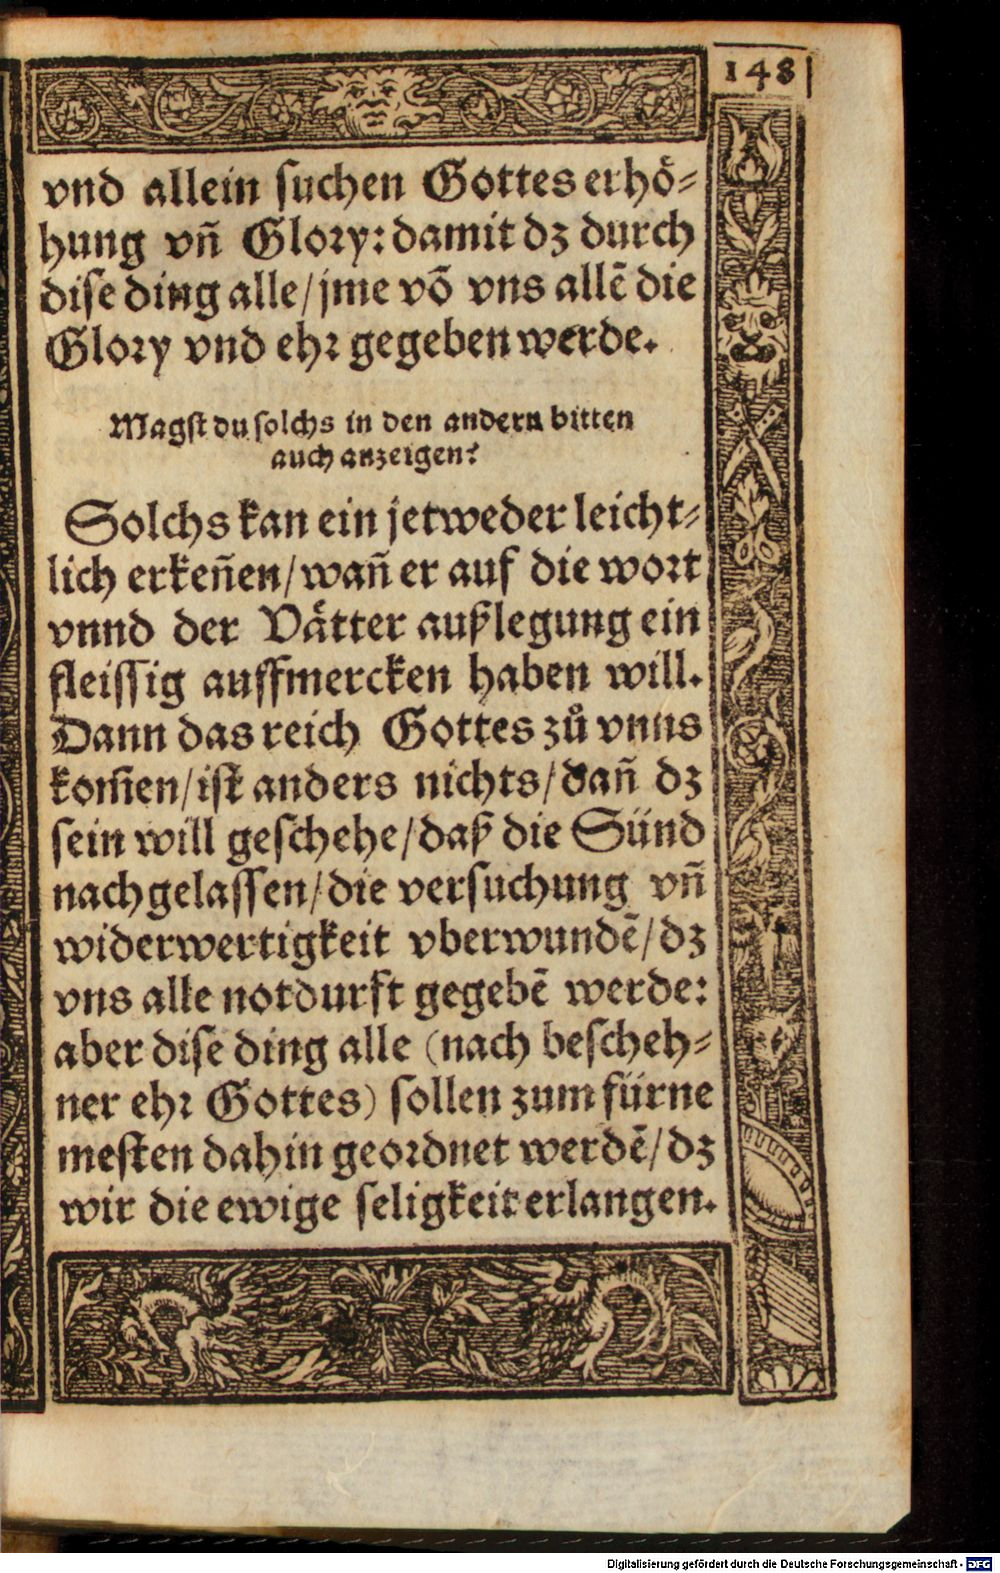 148
vnd allein suchen Gottes erhö⸗
hung vñ Glory: damit dz durch
dise ding alle/jme vō vns allē die
Glory vnd ehr gegeben werde.
Magst du solchs in den andern bitten
auch anzeigen?
Solchs kan ein jetweder leicht⸗
lich erkeñen/wañ er auf die wort
vnnd der Vätter außlegung ein
fleissig auffmercken haben will.
Dann das reich Gottes zů vnns
kom̃en/ist anders nichts/dañ dz
sein will geschehe/daß die Sünd
nachgelassen/die versuchung vñ
widerwertigkeit vberwundē/dz
vns alle notdurft gegebē werde:
aber dise ding alle (nach bescheh⸗
ner ehr Gottes) sollen zum fürne
mesten dahin geordnet werdē/dz
wir die ewige seligkeit erlangen.
Digitalisierung gefördert durch die Deutsche Forschungsgemeinschaft - DFG